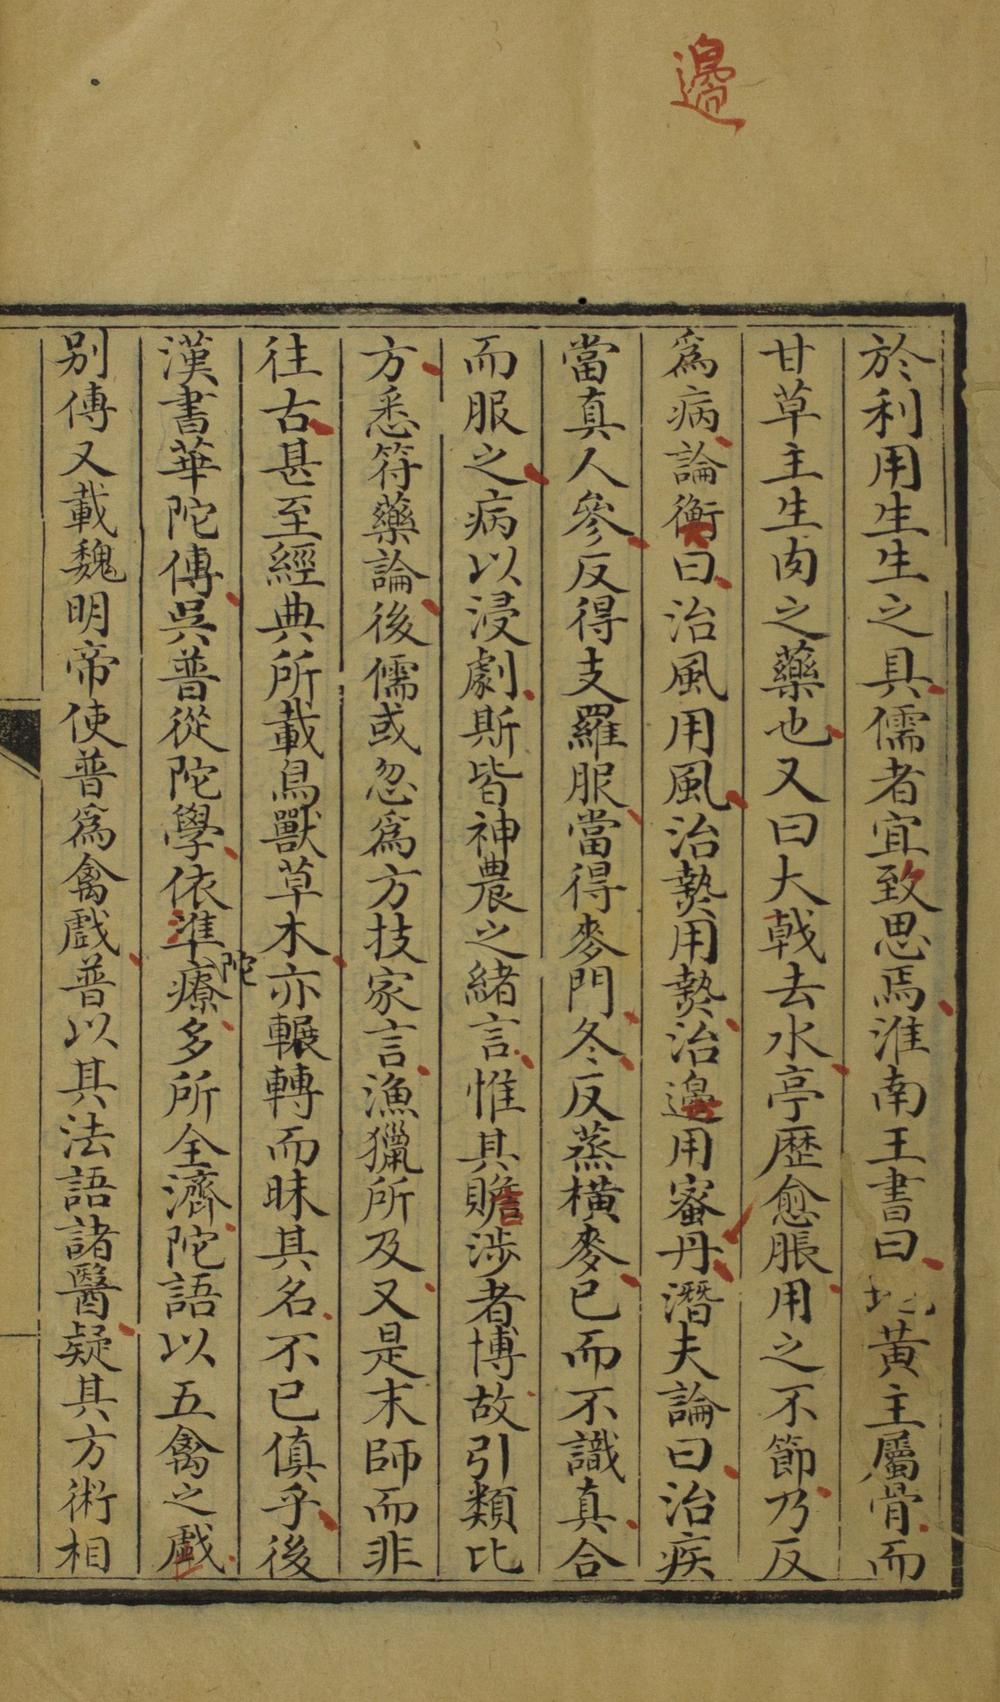 邊
於利用生生之具儒者宜致思焉淮南王書曰地黃主屬骨而
甘草主生肉之藥也又曰大戟去水亭歷愈脹用之不節乃反
爲病論衡曰治風用風治熱用熱治邊用蜜丹潛夫論曰治疾
當真人參反得支羅服當得麥門冬反蒸橫麥已而不識真合
而服之病以浸劇斯皆神農之緒言惟其贍涉者博故引類比
方悉符藥論後儒或忽爲方技家言漁獵所及又是末師而非
往古甚至經典所載鳥獸草木亦輾轉而昧其名不已傎乎後
漢書華陀傳吳普從陀學依準陀療多所全濟陀語以五禽之戲
別傳又載魏明帝使普爲禽戲普以其法語諸醫疑其方術相